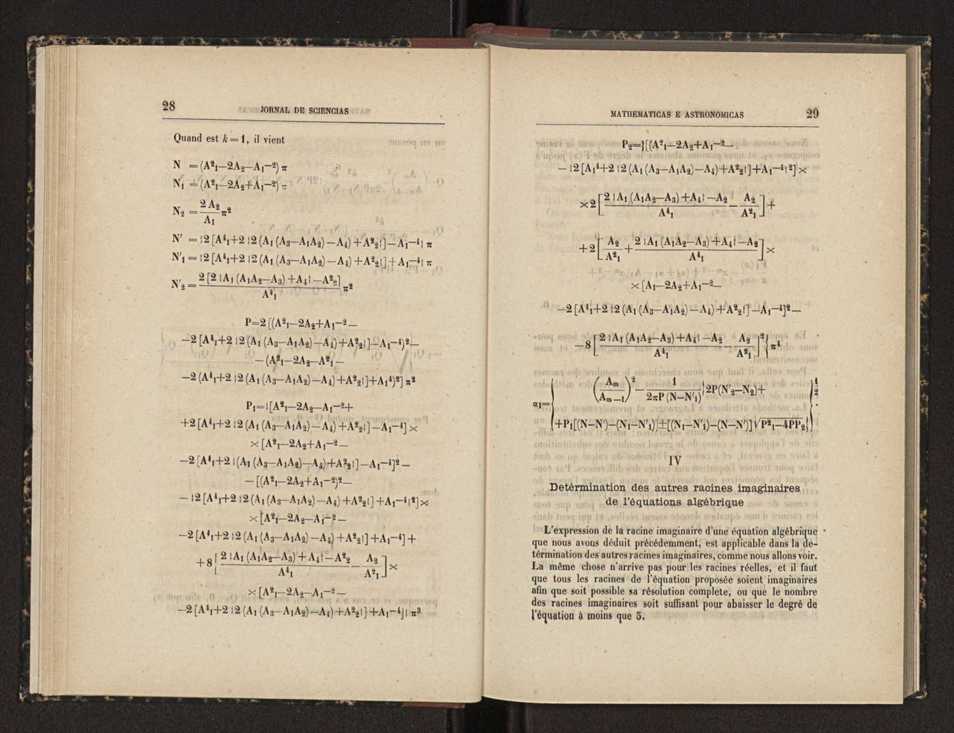 28
JORNAL DE SCIENCIAS
Quand est k=1, il vient
N =(A²₁—2A₂—A₁⁻²) π
N₁ =(A²₁—2A₂+A₁⁻²) π
N₂ = 2A₂/A₁ π²
N' ={2[A⁴₁+2{2(A₁(A₃—A₁A₂)—A₄)+A²₂}]—A₁⁻⁴} π
N'₁ ={2[A⁴₁+2{2(A₁(A₃—A₁A₂)—A₄)+A²₂}]+A₁⁻⁴} π
N'₂ = 2[2{A₁(A₁A₂—A₃)+A₄}—A²₂]/A⁴₁ π²
P=2[(A²₁—2A₂+A₁⁻²—
—2[A⁴₁+2{2(A₁(A₃—A₁A₂)—A₄)+A²₂}]—A₁⁻⁴)²—
—(A²₁—2A₂—A²₁—
—2(A⁴₁+2{2(A₁(A₃—A₁A₂)—A₄)+A²₂}]+A₁⁴)²] π²
P₁={[A²₁—2A₂—A₁⁻²+
+2[A⁴₁+2{2(A₁(A₃—A₁A₂)—A₄)+A²₂}]—A₁⁻⁴]×
×[A²₁—2A₂+A₁⁻²—
—2[A⁴₁+2{(A₁(A₃—A₁A₂)—A₄)+A²₂}]—A₁⁻⁴]²—
—[(A²₁—2A₂+A₁⁻²)²—
—{2[A⁴₁+2{2(A₁(A₃—A₁A₂)—A₄)+A²₂}]+A₁⁻⁴}²]×
×[A²₁—2A₂—A₁⁻²—
—2[A⁴₁+2{2(A₁(A₃—A₁A₂)—A₄)+A²₂}]+A₁⁻⁴]+
+8[2{A₁(A₁A₂—A₃)+A₄}—A²₂/A⁴₁—A₂/A²₁]×
×[A²₁—2A₂—A₁⁻²—
—2[A⁴₁+2{2(A₁(A₃—A₁A₂)—A₄)+A²₂}]+A₁⁻⁴]} π³
MATHEMATICAS E ASTRONOMICAS
29
P₂=}[(A²₁—2A₂+A₁⁻²—
—{2[A₁⁴+2{2(A₁(A₃—A₁A₂)—A₄)+A²₂}]+A₁⁻⁴}²]×
×2[2{A₁(A₁A₂—A₃)+A₄}—A₂/A⁴₁—A₂/A²₁]+
+2[A₂/A²₁+2{A₁(A₁A₂—A₃)+A₄}—A₂/A⁴₁]×
×[A₁—2A₂+A₁⁻²—
—2[A⁴₁+2{2(A₁(A₃—A₁A₂)—A₄)+A²₂}]—A₁⁻⁴]²—
—8[2{A₁(A₁A₂—A₃)+A₄}—A₂/A⁴₁—A₂/A²₁]²} π⁴
α₁={(Aₘ/Aₘ₋₁)²—1/2πP(N—N'₁){2P(N'₂—N₂)+
+P₁[(N—N')—(N₁—N'₁)]±[(N₁—N'₁)—(N—N')]√P²₁—4PP₂}}½.
IV
Detérmination des autres racines imaginaires
de l'équations algébrique
L'expression de la racine imaginaire d'une équation algébrique
que nous avons déduit précédemment, est applicable dans la de-
términation des autres racines imaginaires, comme nous allons voir.
La même chose n'arrive pas pour les racines réelles, et il faut
que tous les racines de l'équation proposée soient imaginaires
afin que soit possible sa résolution complète, ou que le nombre
des racines imaginaires soit suffisant pour abaisser le degré de
l'équation à moins que 5.